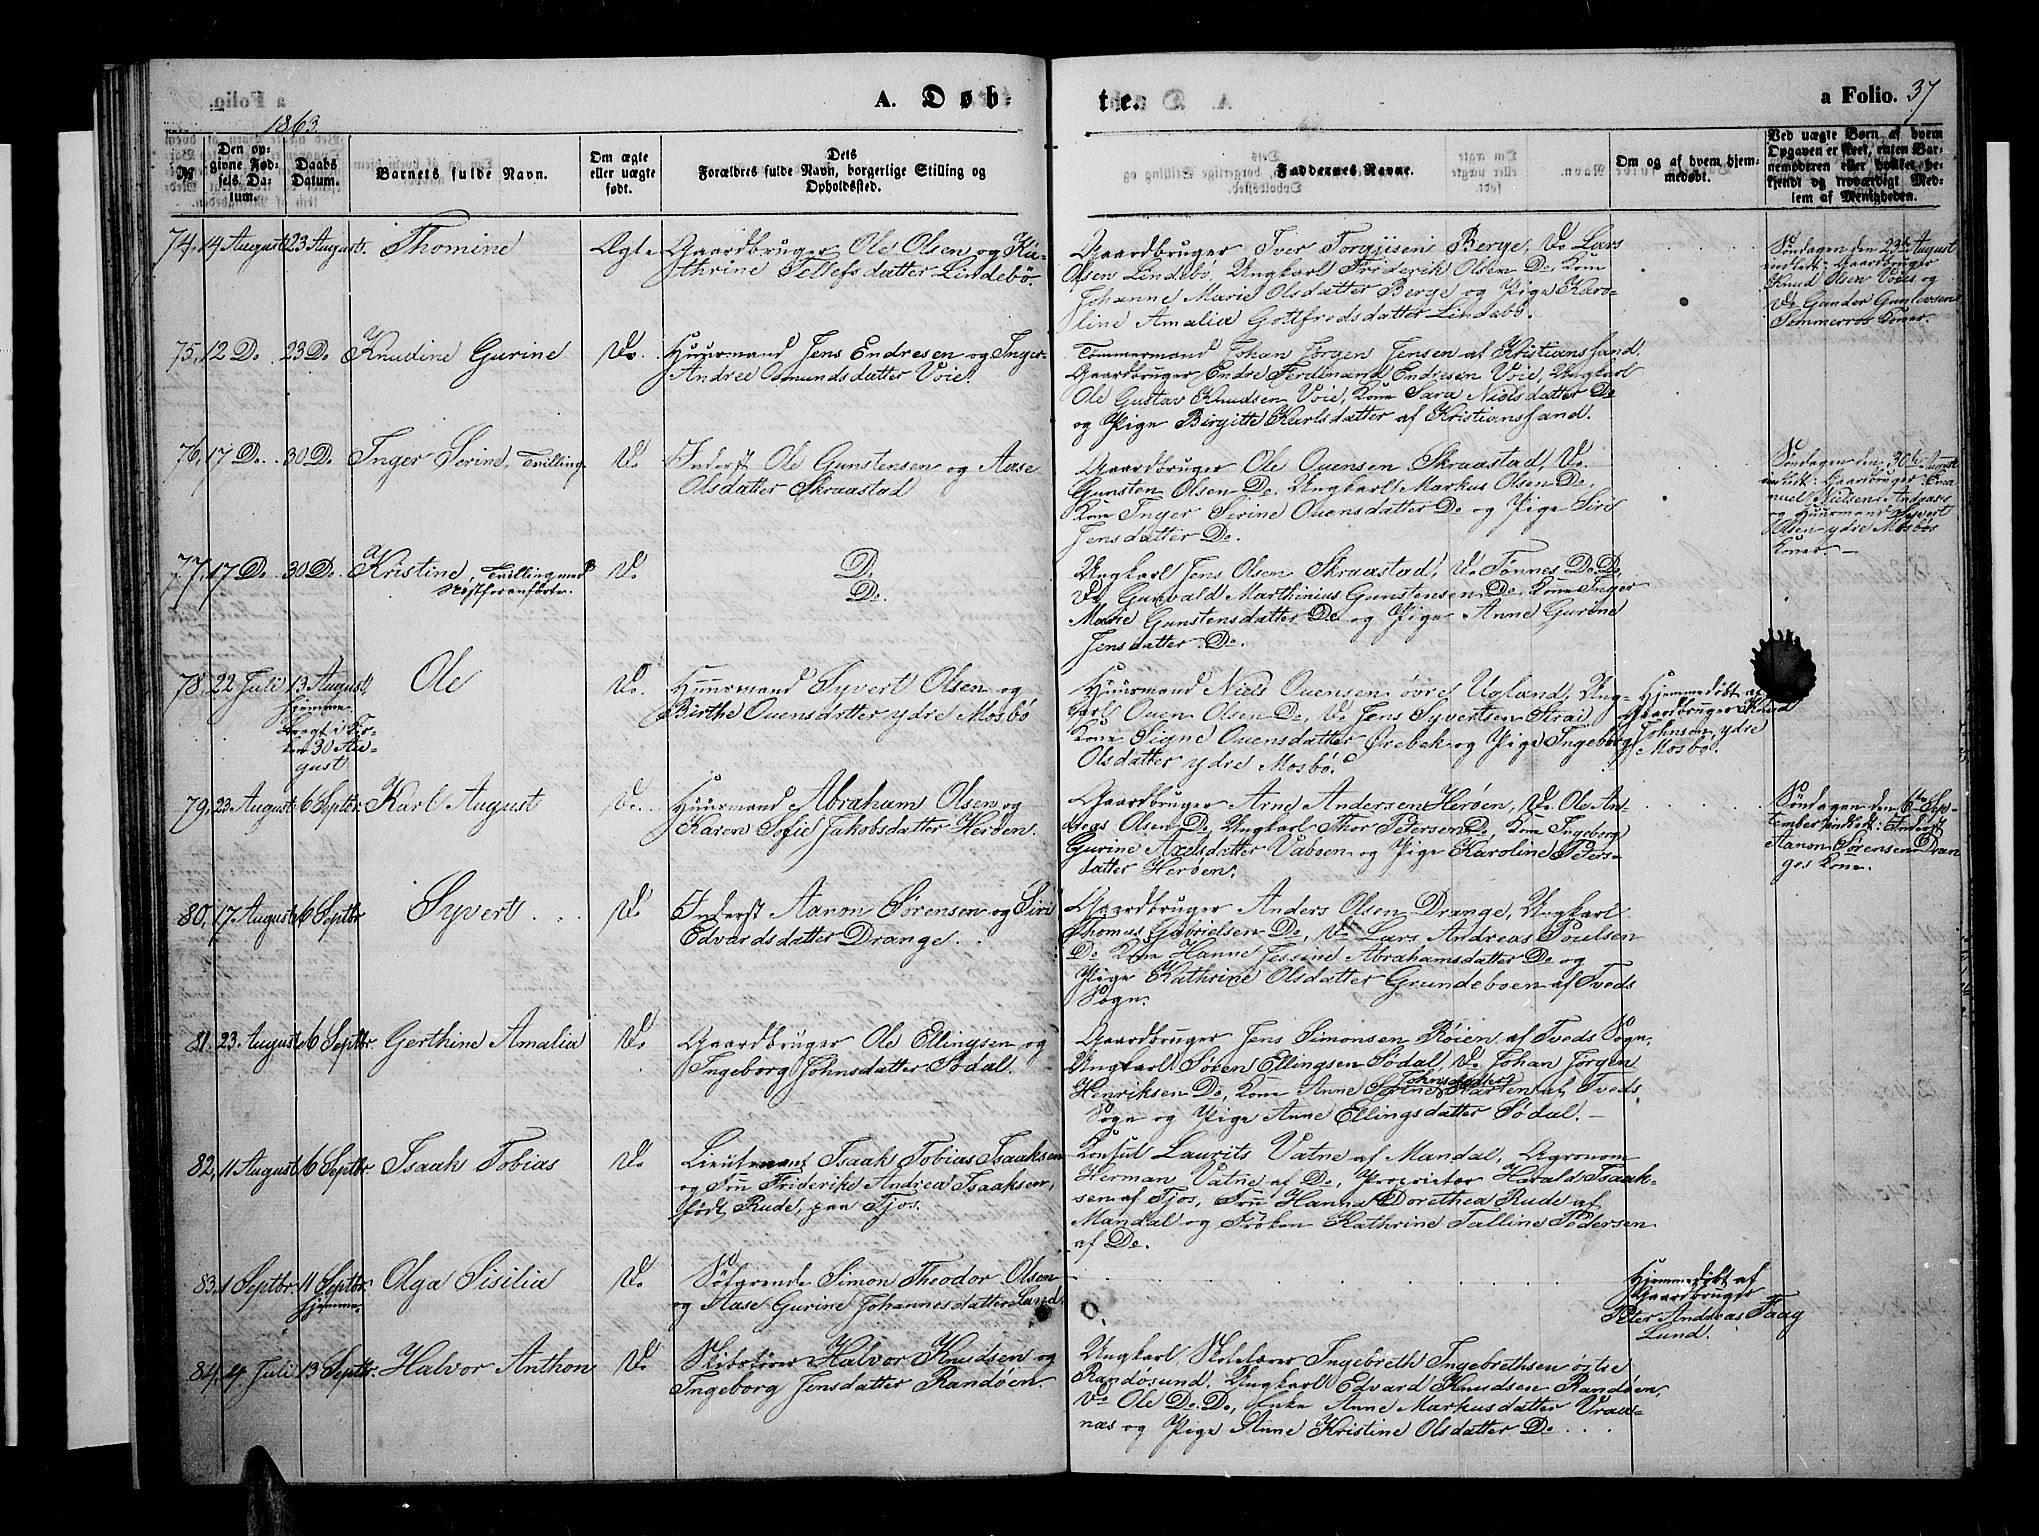 A. Døb-
te.
a Folio. 37
1863.
№
Den op-
givne Fød-
sels Da-
tum.
Daabs
Datum.
Barnets fulde Navn.
Om ægte
eller uægte
født.
Dets
Forældres fulde Navn, borgerlige Stilling og
Opholdssted.
Faddernes Navne.
Om og af hvem hjem-
medøbt.
Ved uægte Børn af hvem
Opgaven er skeet, enten Bar-
nemoderen eller hvilket be-
kjendt og troværdigt Med-
lem af Menigheden.
74. 14 August 23 August. Thomine Ægte Gaardbruger Ole Olsen og Ka-
thrine Tellefsdatter Lindebö.
Gaardbruger Iver Torgjisen Berge, Do Lars
Olsen Lindebö, Ungkarl Friderik Olsen Do, Kone
Johanne Marie Olsdatter Berge og Pige Karo-
line Amalia Gottfredsdatter Lindebö.
Söndagen den 23de August
indledt: Gaardbruger
Knud Olsen Voies og
Do Gunder Gunlevsen
Sømmeros Koner.
75, 12 Do. 23 Do Knudine Gurine Do. Huusmand Jens Endresen og Inger
Andrea Osmundsdatter Voie.
Tømmermand Johan Jørgen Jensen af Kristianssand,
Gaardbruger Endre Ferdinand Endresen Voie, Ungkarl
Ole Gustav Knudsen Voie, Kone Sara Nielsdatter Do
og Pige Birgitte Karlsdatter af Kristianssand.
76, 17 Do. 30 Do Inger Serine, Tvilling. Do. Inderst Ole Gunstensen og Aase
Olsdatter Skraastad
Gaardbruger Ole Ouensen Skraastad, Do.
Gunsten Olsen Do. Ungkarl Markus Olsen Do,
Kone Inger Serine Ouensdatter Do og Pige Siri
Jensdatter Do.
Söndagen den 30te August
indledt: Gaardbruger Ema-
nuel Nielsen Andaas
og Huusmand Syvert
Olsen ydre Mosbös
Koner —
77, 17 Do. 30 Do. Kristine, Tvilling med
Næstforanførte. Do Do.
Do.
Ungkarl Jens Olsen Skraastad, Do Tønnes Do. Do,
Do Gunvald Marthinius Gunstensen Do, Kone Inger
Marie Gunstensdatter Do og Pige Anne Gurine
Jensdatter Do.
78, 22 Juli 13 August,
hjemme.
Bragt i Kir-
ken 30 Au-
gust
Ole Do. Huusmand Syvert Olsen og
Birthe Ouensdatter ydre Mosbö
Huusmand Niels Ouensen övre Ugland, Ung-
karl Ouen Olsen Do, Do Jens Syvertsen Strai,
Kone Signe Ouensdatter Ørebek og Pige Ingeborg
Olsdatter ydre Mosbö.
Hjemmedøbt af
Gaardbruger Knud
Johnsen ydre
Mosbö.
79, 23 August 6 Septbr. Karl August Do. Huusmand Abraham Olsen og
Karen Sofie Jakobsdatter Herøen.
Gaardbruger Arne Andersen Herøen, Do. Ole An-
dreas Olsen Do, Ungkarl Thor Petersen Do, Kone Ingeborg
Gurine Axelsdatter Vaboen og Pige Karoline Peters-
datter Herøen.
Söndagen den 6te Sep-
tember indledt: Inderst
Aanon Sørensen Dran-
ges Kone.
80, 17 August 6 Septbr Syvert Do Inderst Aanon Sørensen og Siri
Edvardsdatter Drange.
Gaardbruger Anders Olsen Drange, Ungkarl
Thomas Gabrielsen Do, Do Lars Andreas Poulsen
Do Kone Hanne Jessine Abrahamsdatter Do og
Pige Kathrine Olsdatter Grundeboen af Tveds
Sogn.
81. 23 August 6 Septbr. Gerthine Amalia Do Gaardbruger Ole Ellingsen og
Ingeborg Johnsdatter Södal.
Gaardbruger Jens Simonsen Røien af Tveds Sogn,
Ungkarl Søren Ellingsen Södal, Do. Johan Jørgen
Henriksen Do, Kone Anne Johnsdatter af Tveds
Sogn og Pige Anne Ellingsdatter Södal. —
82, 11 August 6 Septbr. Isaak Tobias Do Lieutenant Isaak Tobias Isaaksen
og Fru Friderike Andrea Isaaksen,
født Rude, paa Tjos.
Konsul Laurits Vatne af Mandal, Agronom
Herman Vatne af Do, Proprietær Harald Isaak-
sen af Tjos, Fru Hanna Dorethea Rude af
Mandal og Frøken Kathrine Talline Pedersen
af Do.
83, 1 Septbr. 11 Septbr.
hjemme.
Olga Sisilia Do Sölgrende Simon Theodor Olsen
og Aase Gurine Johannesdatter Lund.
Hjemmedøbt af
Gaardbruger
Peter Andreas Faag
Lund.
84, 4 Juli 13 Septbr. Halvor Anthon Do Skibsfører Halvor Knudsen og
Ingeborg Jensdatter Randøen.
Ungkarl, Skolelærer Ingebreth Ingebrethsen østre
Randøsund, Ungkarl Edvard Knudsen Randøen,
Do Ole Do. Do, Enke Anne Markusdatter Vraa-
næs og Pige Anne Kristine Olsdatter Do